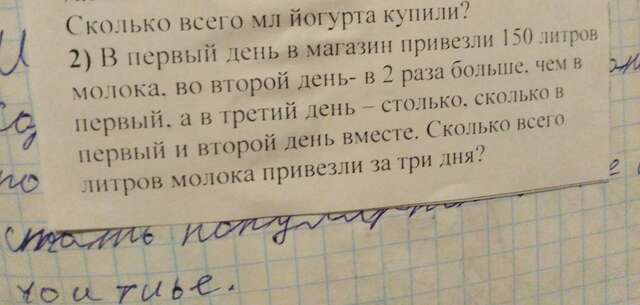 Сколько всего мл йогурта купили?
2) В первый день в магазин привезли 150 литров
молока, во второй день- в 2 раза больше, чем в
первый, а в третий день – столько, сколько в
первый и второй день вместе. Сколько всего
литров молока привезли за три дня?
стать